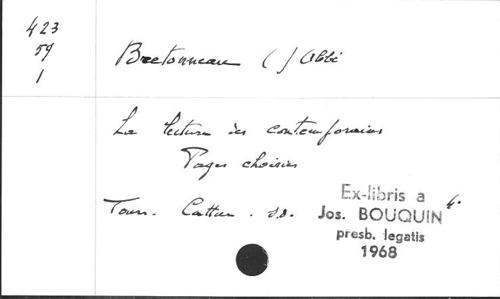 423
59
1
Bretonneau ( ) Abbé
La lecture des contemporains
Pages choisies
Tours. Cattier. s.d. 4°.
Ex-libris a
Jos. BOUQUIN
presb. legatis
1968